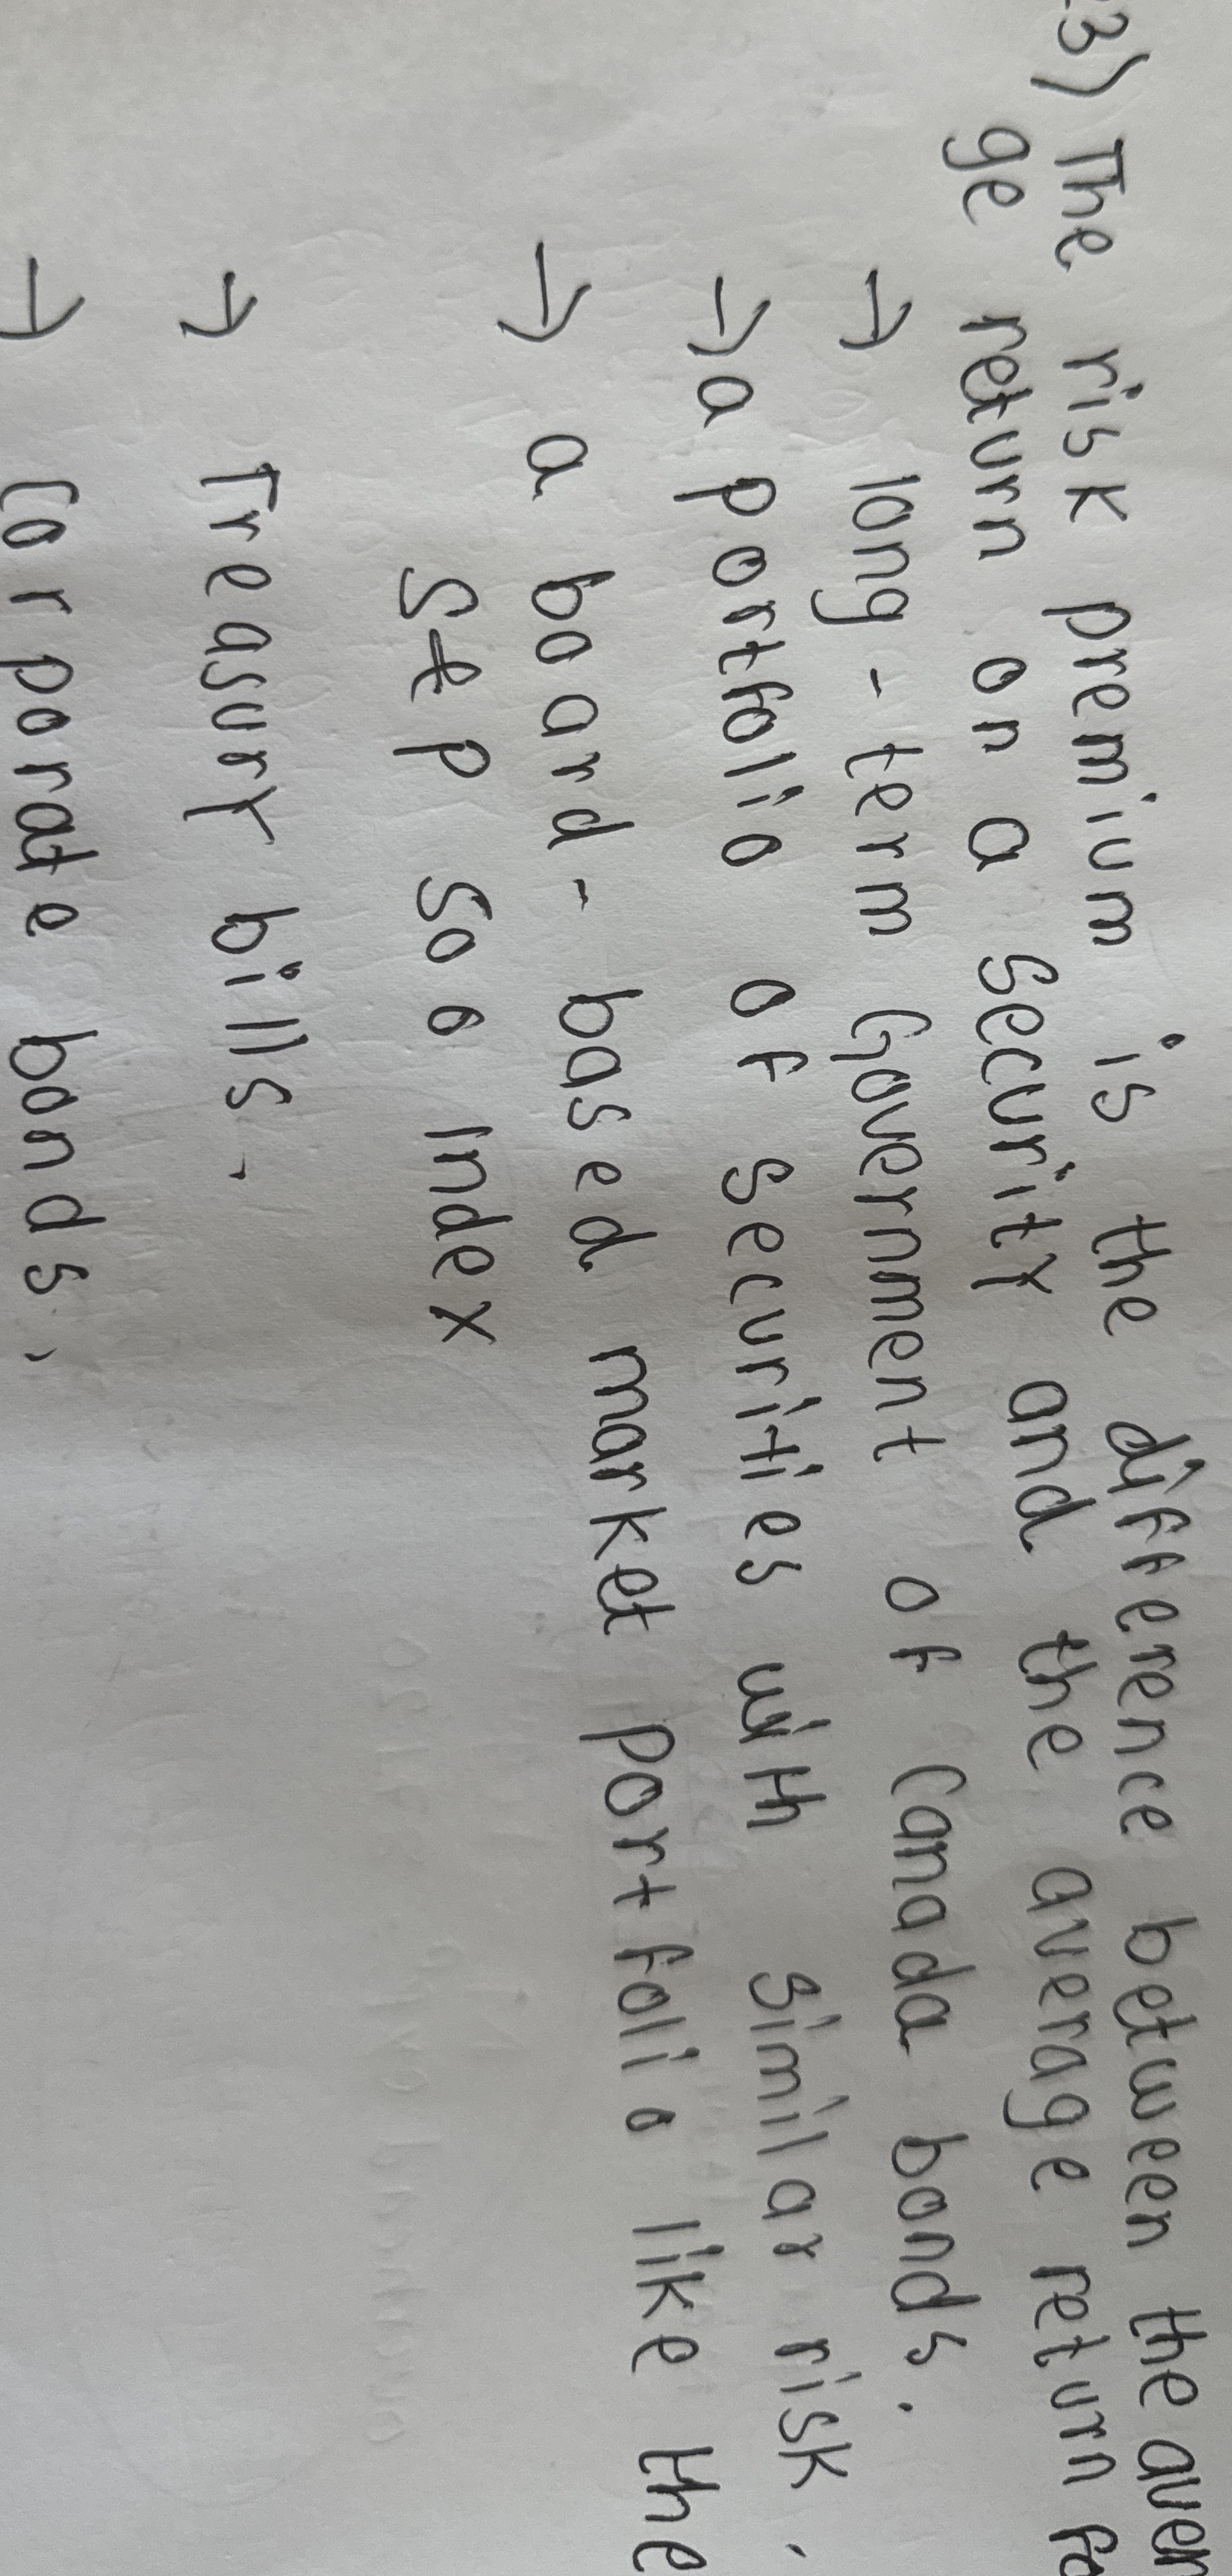 23) The risk premium is the difference between the aver
ge return on a security and the average return fo
→ long-term Government of Canada bonds.
→ a portfolio of securities with similar risk.
→ a board-based market portfolio like the
S&P 500 Index
→ Treasury bills.
→ Corporate bonds.